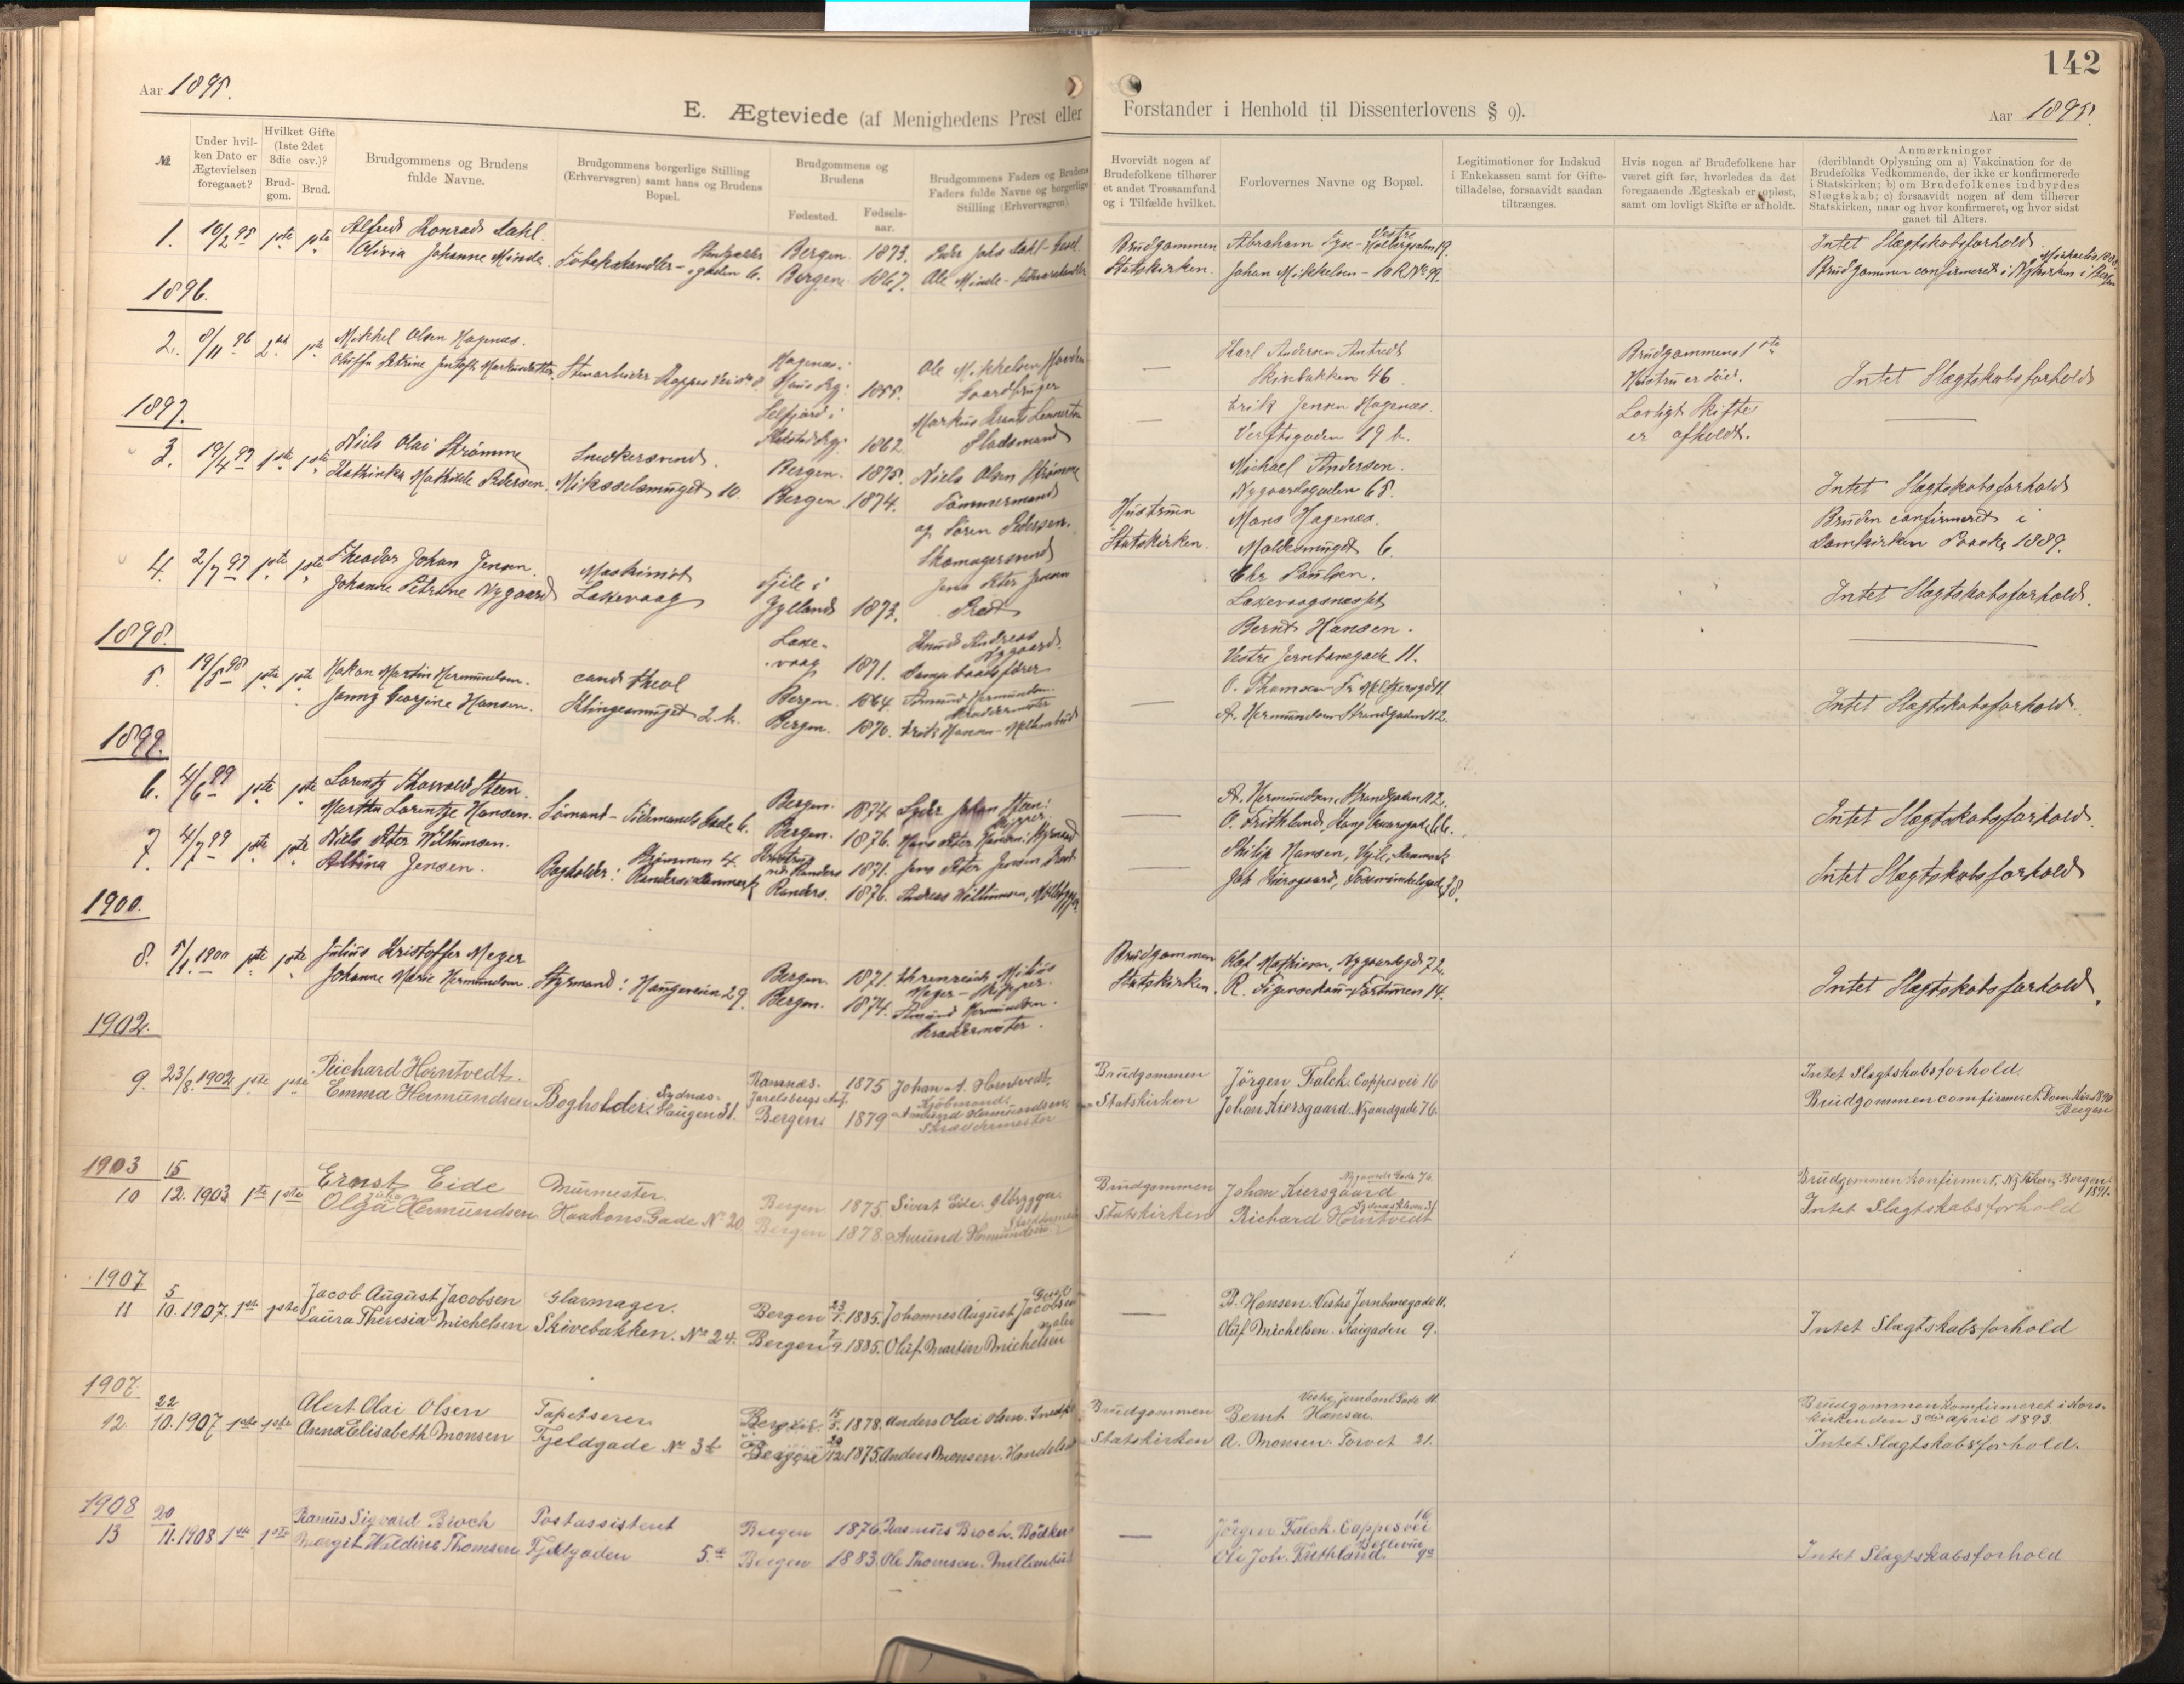 142
Aar 1895.
E. Ægteviede (af Menighedens Prest eller Forstander i Henhold til Dissenterlovens § 9).
Aar 1895.
№.
Under hvilken Dato er Ægtevielsen foregaaet?
Hvilket Gifte (1ste 2det 3die osv.)?
Brudgom.
Brud.
Brudgommens og Brudens fulde Navne.
Brudgommens borgerlige Stilling (Erhvervsgren) samt hans og Brudens Bopæl.
Brudgommens og Brudens
Fødested.
Fødselsaar.
Brudgommens Faders og Brudens Faders fulde Navne og borgerlige Stilling (Erhvervsgren).
Hvorvidt nogen af Brudefolkene tilhører et andet Trossamfund og i Tilfælde hvilket.
Forlovernes Navne og Bopæl.
Legitimationer for Indskud i Enkekassen samt for Giftetilladelse, forsaavidt saadan tiltrænges.
Hvis nogen af Brudefolkene har været gift før, hvorledes da det foregaaende Ægteskab er opløst, samt om lovligt Skifte er afholdt.
Anmærkninger
(deriblandt Oplysning om a) Vakcination for de Brudefolks Vedkommende, der ikke er konfirmerede i Statskirken; b) om Brudefolkenes indbyrdes Slægtskab; c) forsaavidt nogen af dem tilhører Statskirken, naar og hvor konfirmeret, og hvor sidst gaaet til Alters.
1. 10/2 95 1ste 1ste Alfred Konrad Dahl. Bergen. 1873. Brudgommen Intet Slægtskabsforhold
Johanne Minde. Bergen 1867. Ole Minde Statskirken. Johan Mikkelsen Brudgommen confirmeret i Nykirken i Bergen
1896.
2. 8/11 96 2det 1ste Mikkel Olsen Hagenæs. Hagenæs i Ole Mikkelsen Karl Andersen Brudgommens 1ste
1855. Gaardbruger Skivebakken 46. Hustru er død. Intet Slægtskabsforhold
Erik Jensen Hagenæs. Lovligt Skifte
1862 Pladsmand Verftsgaden 19 b. er afholdt.
1897.
3. 19/4 97 1ste 1ste Niels Olai Strømme Snedkersvend. Bergen. 1875. Niels Olsen Strømme Michael Andersen. Intet Slægtskabsforhold
Kathinka Mathilde Pedersen. 10. Bergen 1874. Tømmermand Nygaardsgaden 68.
og Søren Pedersen. Hustruen Mons Hagenæs. Bruden confirmeret i
Skomagersvend Statskirken. 6. Domkirken Paaske 1889.
4. 2/7 97 1ste 1ste Theodor Johan Jensen. Maskinist Jens Peter Jensen Chr Paulsen.
Johanne Petrine Nygaard Laxevaag Jylland 1873. Laxevaagsnæsset Intet Slægtskabsforhold.
Laxe- Knud Andreas Nygaard. Bernt Hansen.
vaag 1871. Dampbaadsfører Vestre Jernbanegade 11.
1898.
5. 19/5 98 1ste 1ste Hakon Martin Hermundsen. cand theol Bergen. 1864. Amund Hermundsen. Skræddermester O. Thomsen
Janny Georgine Hansen. Klingesmuget 2. b. Bergen. 1870. Erik Hansen A. Hermundsen Strandgaden 112. Intet Slægtskabsforhold.
1899.
6. 4/6 99 1ste 1ste Lorentz Thorvald Steen. Bergen. 1874 Johan Steen: A. Hermundsen, Strandgaden 112.
Martha Lorentze Hansen. Sømand Bergen. 1876. Hans Peter Hansen Intet Slægtskabsforhold.
7. 4/7 99 1ste 1ste Niels Peter Willumsen. 1871. Jens Peter Jensen Philip Hansen, Vejle, Danmark
Albina Jensen. Bogholder: Randers i Danmark Randers. 1876. Andreas Willumsen, Joh Kiersgaard, Intet Slægtskabsforhold
1900.
8. 5/1 1900 1ste 1ste Julius Kristoffer Meyer Bergen. 1871. Meyer - Skipper. Brudgommen Olaf Mathiesen, Nygaardsgd 72.
Johanne Marie Hermundsen. Styrmand: Haugeveien 29. Bergen. 1874. Amund Hermundsen. Skræddermester. Statskirken. R. Intet Slægtskabsforhold.
1902.
9. 23/8. 1902 1ste 1ste Richard Horntvedt. Ramnæs. Jarlsbergs Amt. 1875 Johan A. Horntvedt. Kjøbmand. Brudgommen Jörgen Falck. Cappesvei 16 Intet Slægtskabsforhold.
Emma Hermundsen Bogholder. Sydnæs-Haugen 31. Bergen 1879 Amund Hermundsen. Skræddermester Statskirken Johan Kiersgaard. Nygaardgade 76. Brudgommen comfirmeret Domkirk 1890 Bergen
1903
10 15/12. 1903 1ste 1ste Ernst Eide Murmester. Bergen 1875. Sivert Eide. Ølbrygger. Brudgommen Johan Kiersgaard Nygaards Gade 76. Brudgommen konfirmert, Nykirken, Bergen 1891.
Olga Hermundsen Haakons Gade No 20 Bergen 1878. Amund Hermundsen. Statskirken Richard Horntvedt Intet Slægtskabsforhold
1907
11 5/10. 1907. 1ste 1ste Jacob August Jacobsen Glarmager. Bergen 23/7. 1885. Johannes August Jacobsen B. Hansen. Vestre Jernbanegade 11.
Laura Theresia Michelsen Skivebakken. No 24. Bergen 7/9. 1885. Oluf Martin Michelsen Oluf Michelsen. Kaigaden 9. Intet Slægtskabsforhold
1907
12. 22/10. 1907 1ste 1ste Alert Olai Olsen Tapetserer Bergen. 1878. Anders Olai Olsen. Brudgommen Bernt Hansen. Vestre Jernbane Gade 11. Brudgommen Komfirmeret i Kors-
kirken den 3die april 1893.
Anna Elisabeth Monsen Fjeldgade No 3b Bergen 1875. Anders Monsen. Statskirken A. Monsen. Torvet 21. Intet Slægtskabsforhold.
1908
13 20/11. 1908 1ste 1ste Rasmus Sigvard Broch Postassistent Bergen 1876. Rasmus Broch. Bødker Jörgen Falck. Cappesvei 16
Margit Thomsen Fjeldgaden 5.a Bergen 1883. Ole Thomsen. Ole Joh. Bellevue 9a Intet Slægtskabsforhold